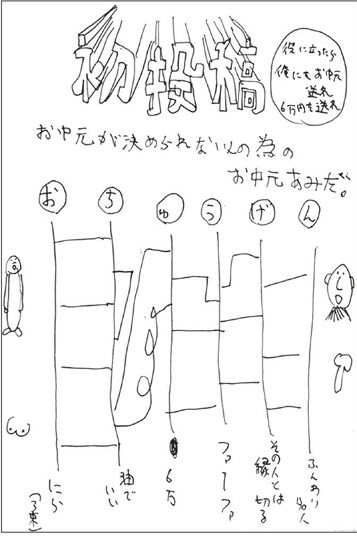 初投稿
役に立ったら
俺にもお中元
送れ
6万円を送れ
お中元が決められない人の為の
お中元あみだ。
お ち ゅ う げ ん
ふんわり名人
その人とは
縁切る
ファーファ
6万
油で
いい
にら
(3束)